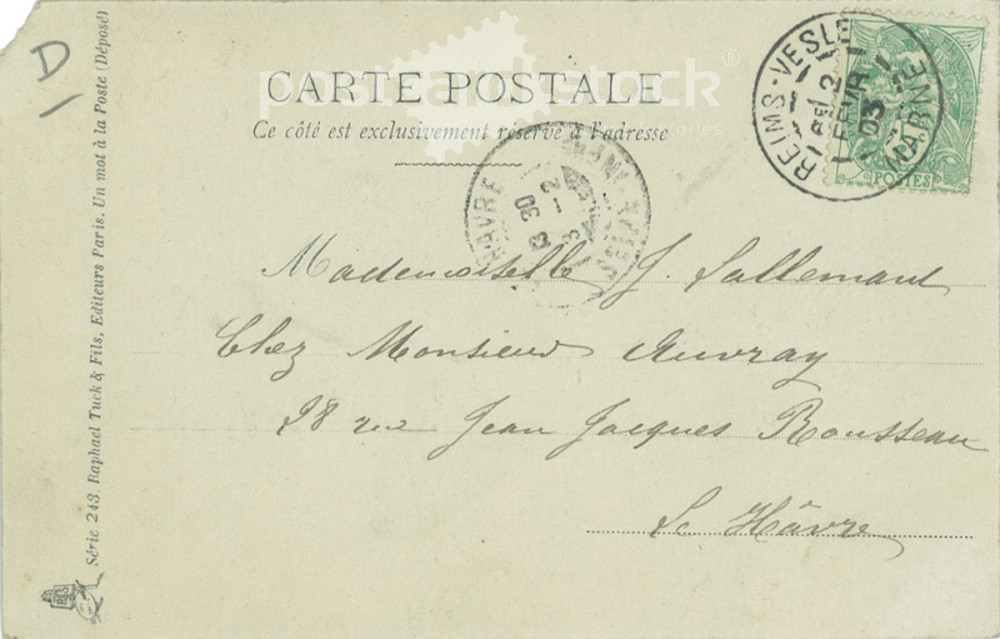 D
CARTE POSTALE
Ce côté est exclusivement réservé à l'adresse
REIMS-VESLE
FEVR
03
MARNE
POSTES
HAVRE
30
Mademoiselle J. Lallemant
Chez Monsieur Auvray
28 rue Jean Jacques Rousseau
Le Hâvre
Série 243. Raphael Tuck & Fils, Editeurs Paris. Un mot à la Poste (Déposé)
postcardstock®